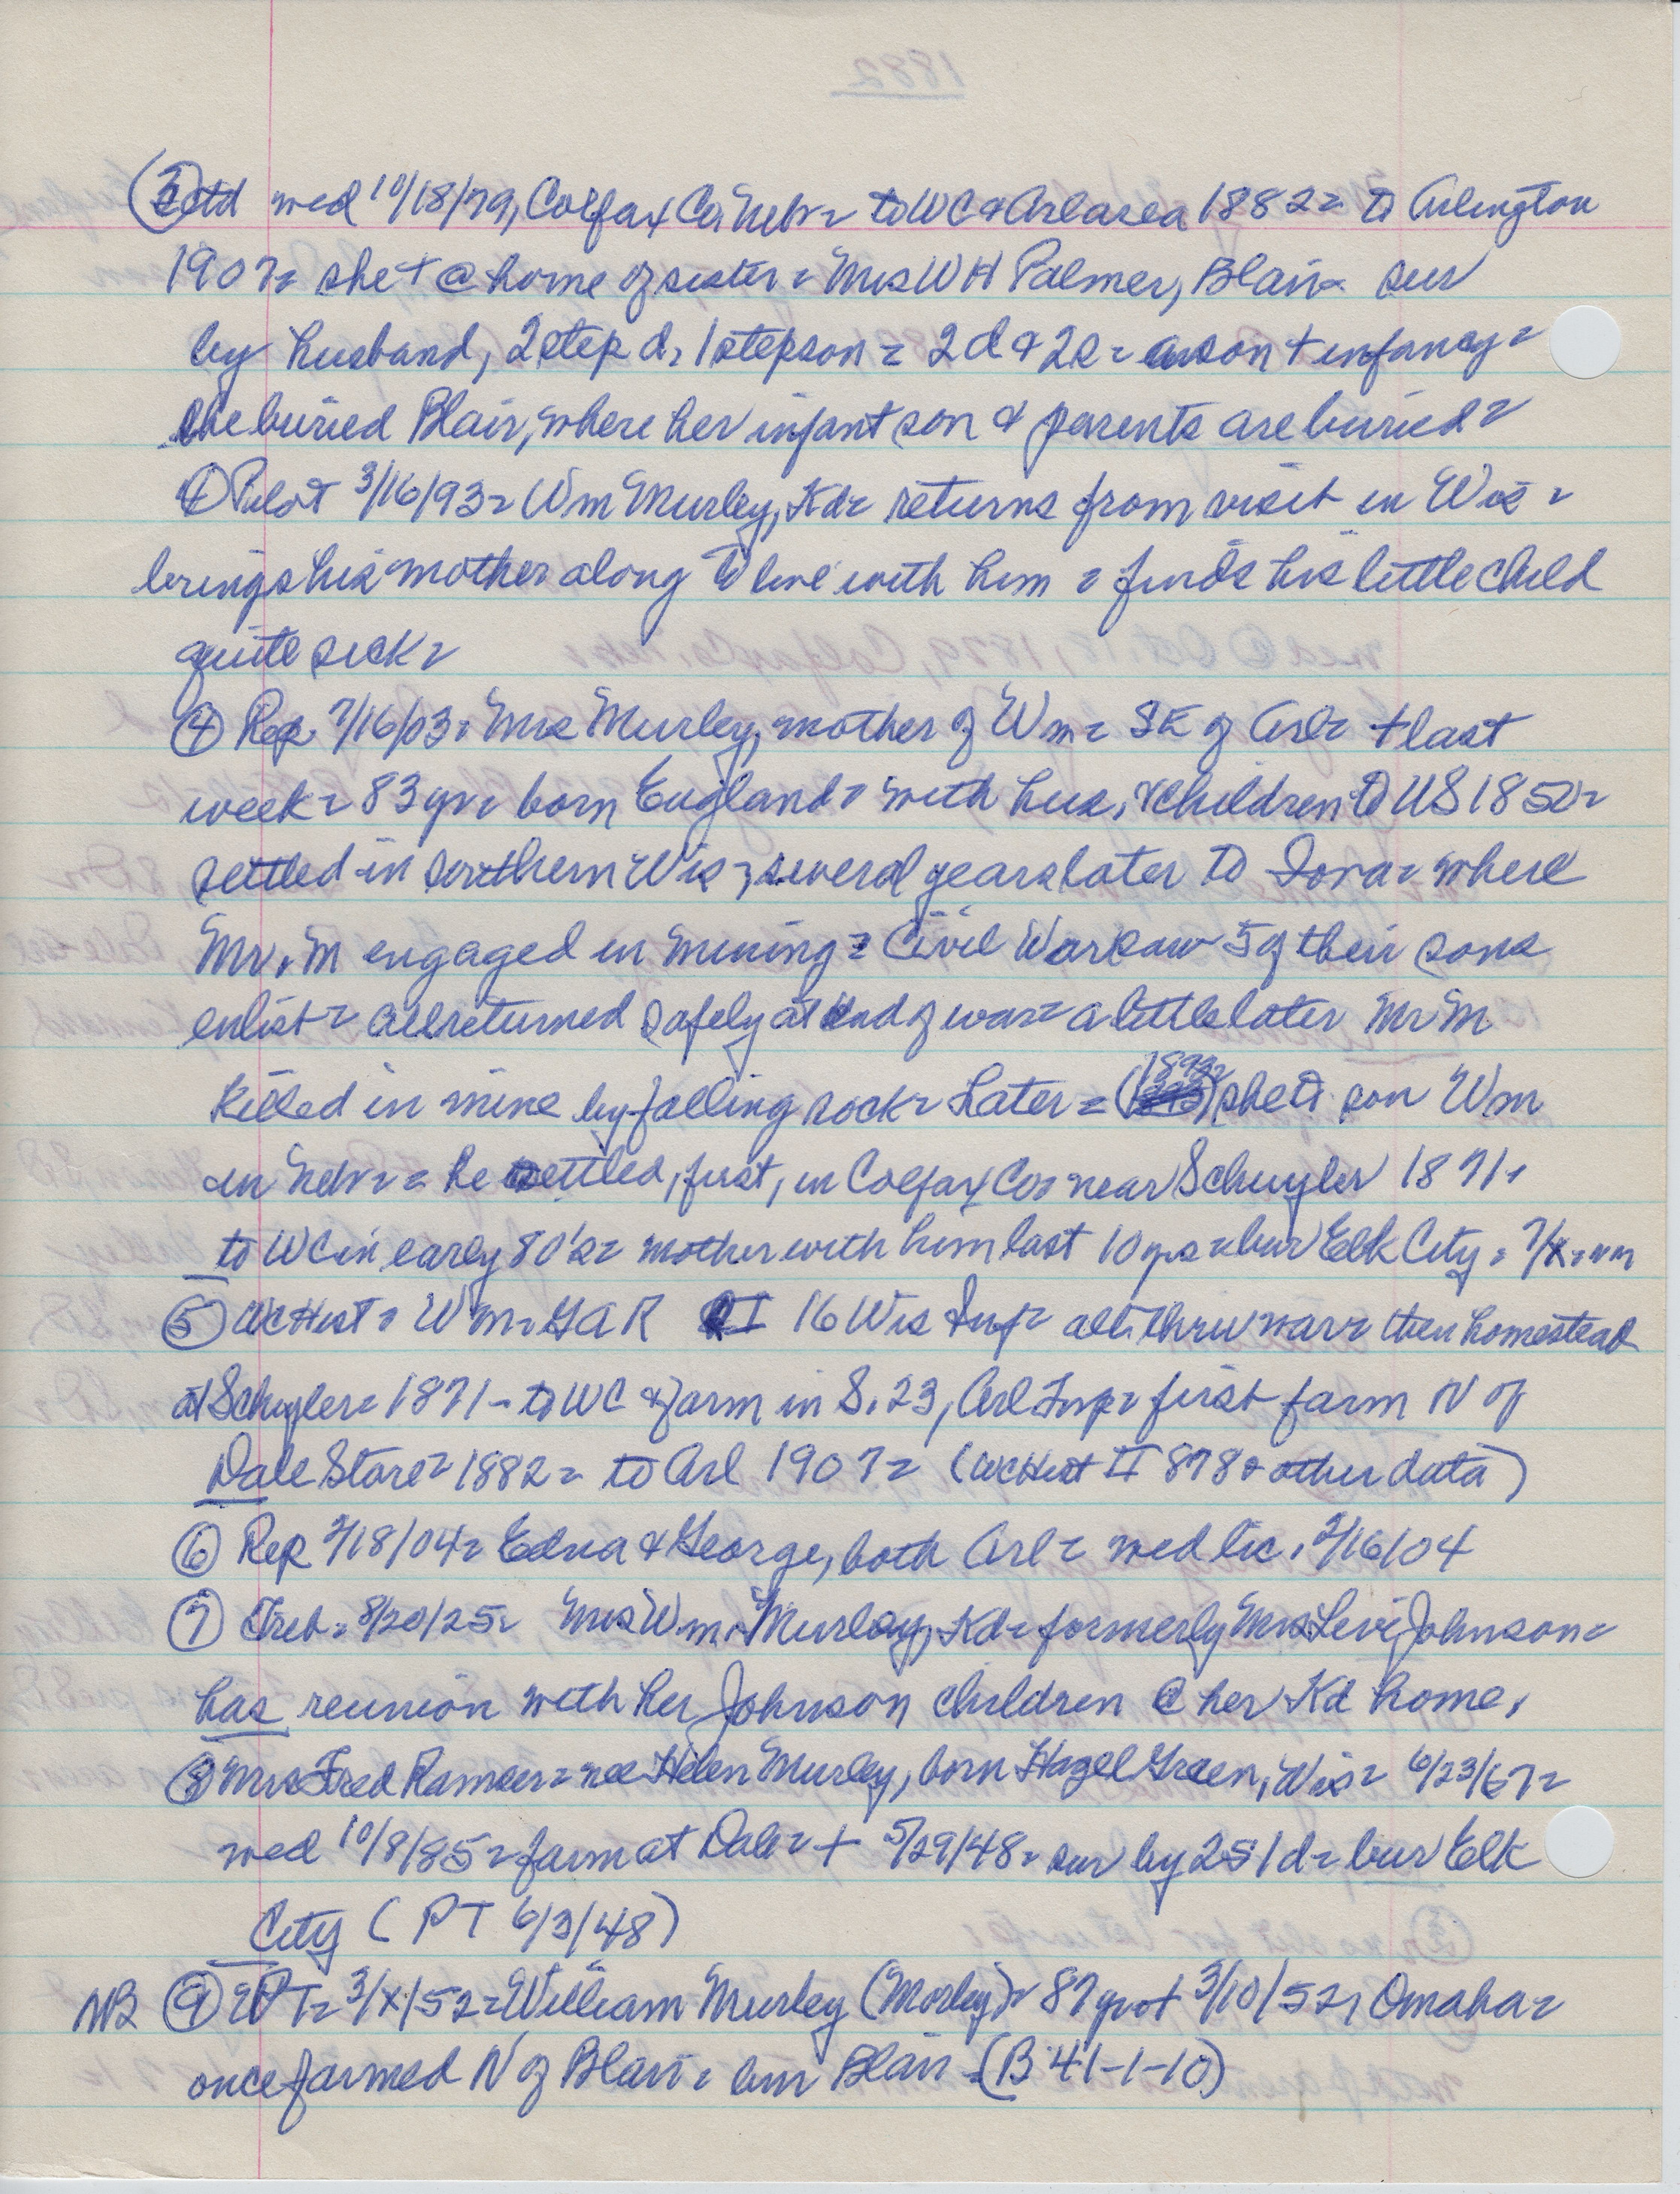 1882
(3) ctd med 10/18/79, Colfax Co, Nebr = to WC & Arl area 1882 = to Arlington
1907 = she + @ home of sister = Mrs W H Palmer, Blair = sur
by husband, 2 step d, 1 stepson = 2 d & 2 s = a son + infancy =
she buried Blair, where her infant son & parents are buried =
④ Pilot 3/16/93 = Wm Murley, Kd = returns from visit in Wis =
brings his mother along to live with him = finds his little child
quite sick =
④ Rep. 7/16/03 = Mrs Murley, mother of Wm = SE of Arl = + last
week = 83 yr = born England = with hus, & children to US 1850 =
settled in southern Wis, several years later to Iowa = where
Mr. M engaged in mining = Civil War saw 5 of their sons
enlist = all returned safely at end of war = a little later Mr M
killed in mine by falling rock = Later = (1893) she to son Wm
in Nebr = he settled, first, in Colfax Co = near Schuyler 1871,
to WC in early 80's = mother with him last 10 yrs = bur Elk City = 7/x =
⑤ WC Hist = Wm = GAR I 16 Wis Inf = all thru war = then homestead
at Schuyler = 1871 - to WC & farm in S. 23, Arl Twp = first farm N of
Dale Store = 1882 = to Arl 1907 = (WC Hist II 878 & other data)
⑥ Rep 2/18/04 = Edna & George, both Arl = wed lic, 2/16/04
⑦ Trib = 8/20/25 = Mrs Wm. Murley, Kd = formerly Mrs Levi Johnson =
has reunion with her Johnson children @ her Kd home,
⑧ Mrs Fred = nee Helen Murley, born Hazel Green, Wis = 6/23/67 =
wed 10/8/85 = farm at Dale = + 5/29/48 = sur by 2 s 1 d = bur Elk
City (PT 6/3/48)
NB ⑨ PT = 3/x/52 = William Murley (Morley) = 87 yr + 3/10/52, Omaha =
once farmed N of Blair = bur Blair = (B 41-1-10)